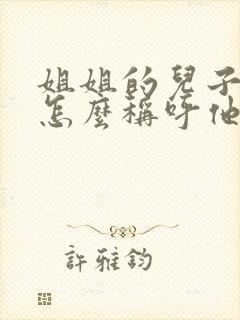 姐姐的兒子
怎麼稱呼他
許雅鈞